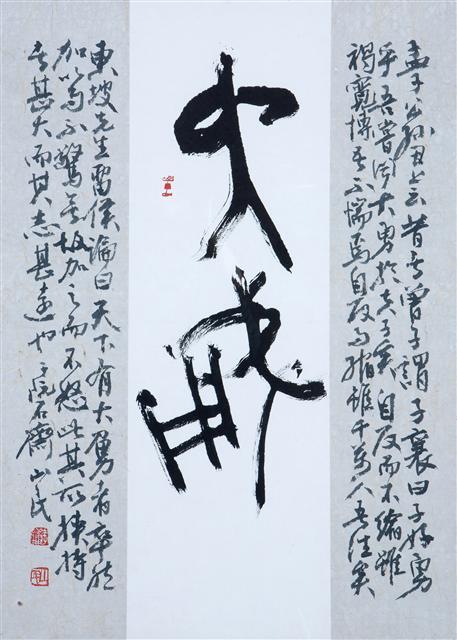 孟子公孫丑云昔者曾子謂子襄曰子好勇
乎吾嘗聞大勇於夫子矣自反而不縮雖
褐寬博吾不惴焉自反而縮雖千萬人吾往矣
大勇
東坡先生留侯論曰天下有大勇者卒然
加以而不驚無故加之而不怒此其所挾持
者甚大而其志甚遠也 石齋山民